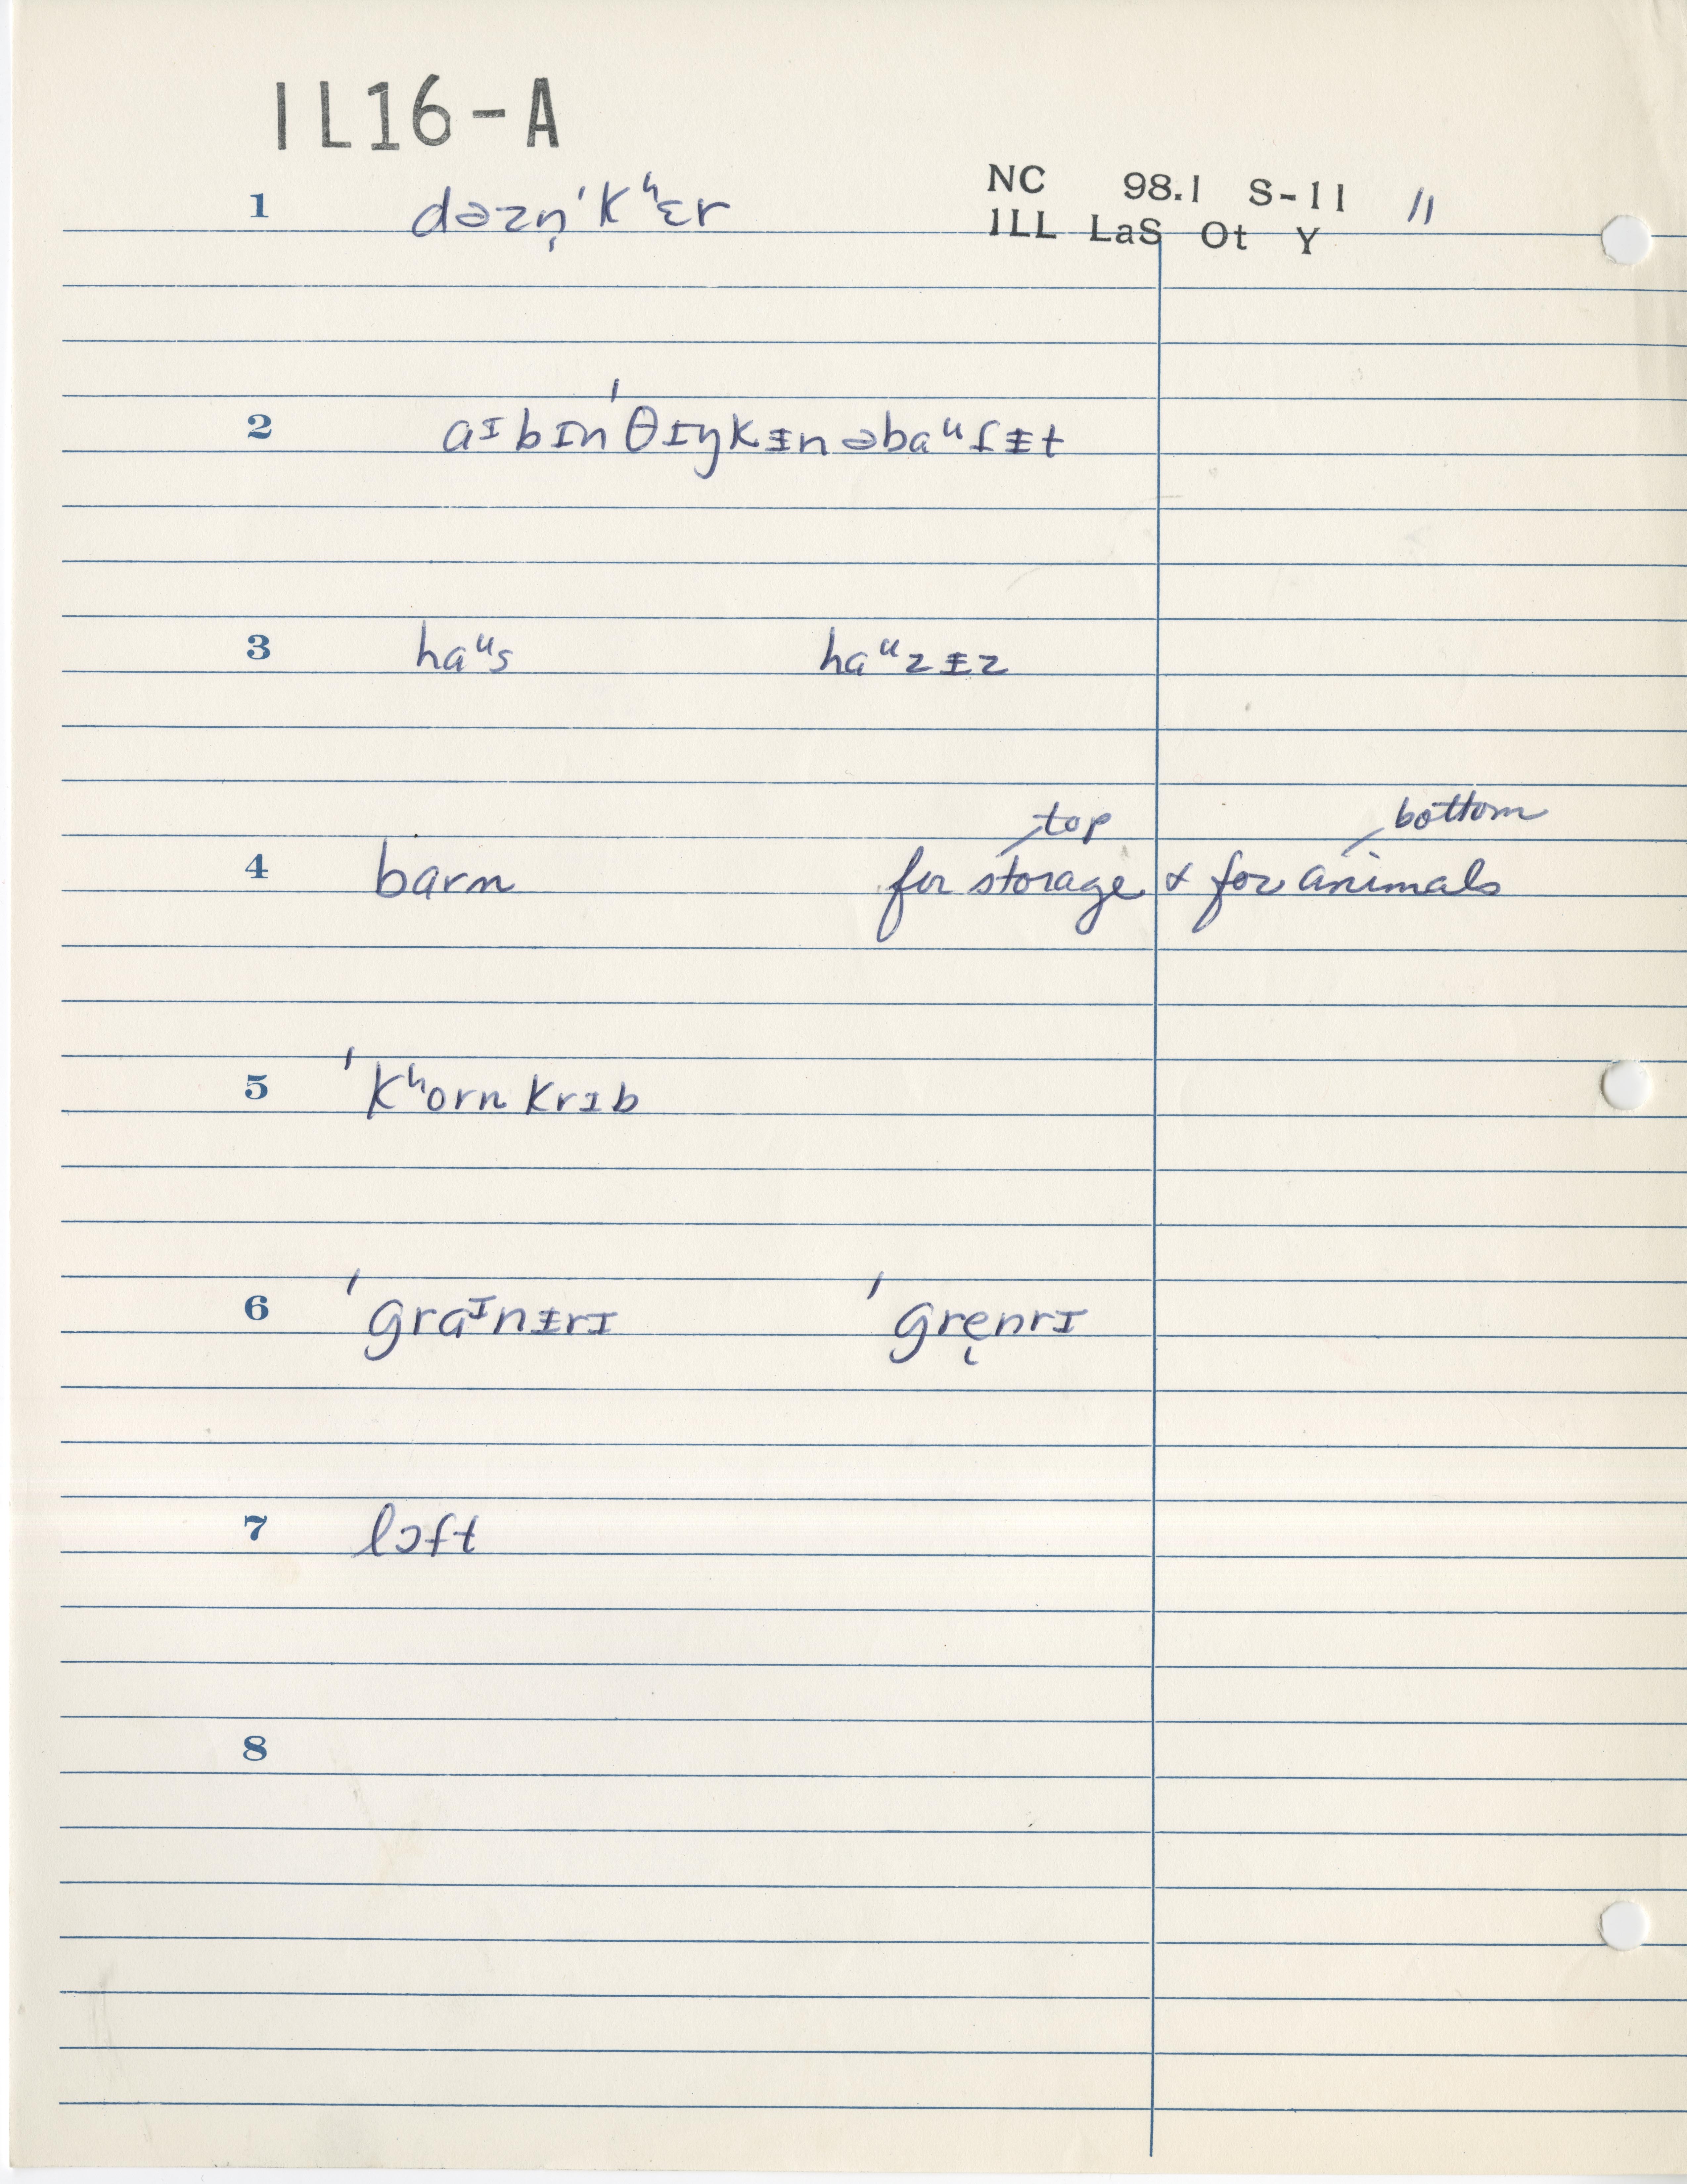 IL16-A
NC 98.1 S-11 11
ILL LaS Ot Y
1 dəzn̩ˈkʰɛr
2 aᶦbɪnˈθɪŋkᵻnəbaᵘɾᵻt
3 haᵘs haᵘzᵻz
top bottom
4 barn for storage & for animals
5 ˈkʰornkrɪb
6 ˈgraᶦnᵻrɪ ˈgre̜nrɪ
7 lɔft
8